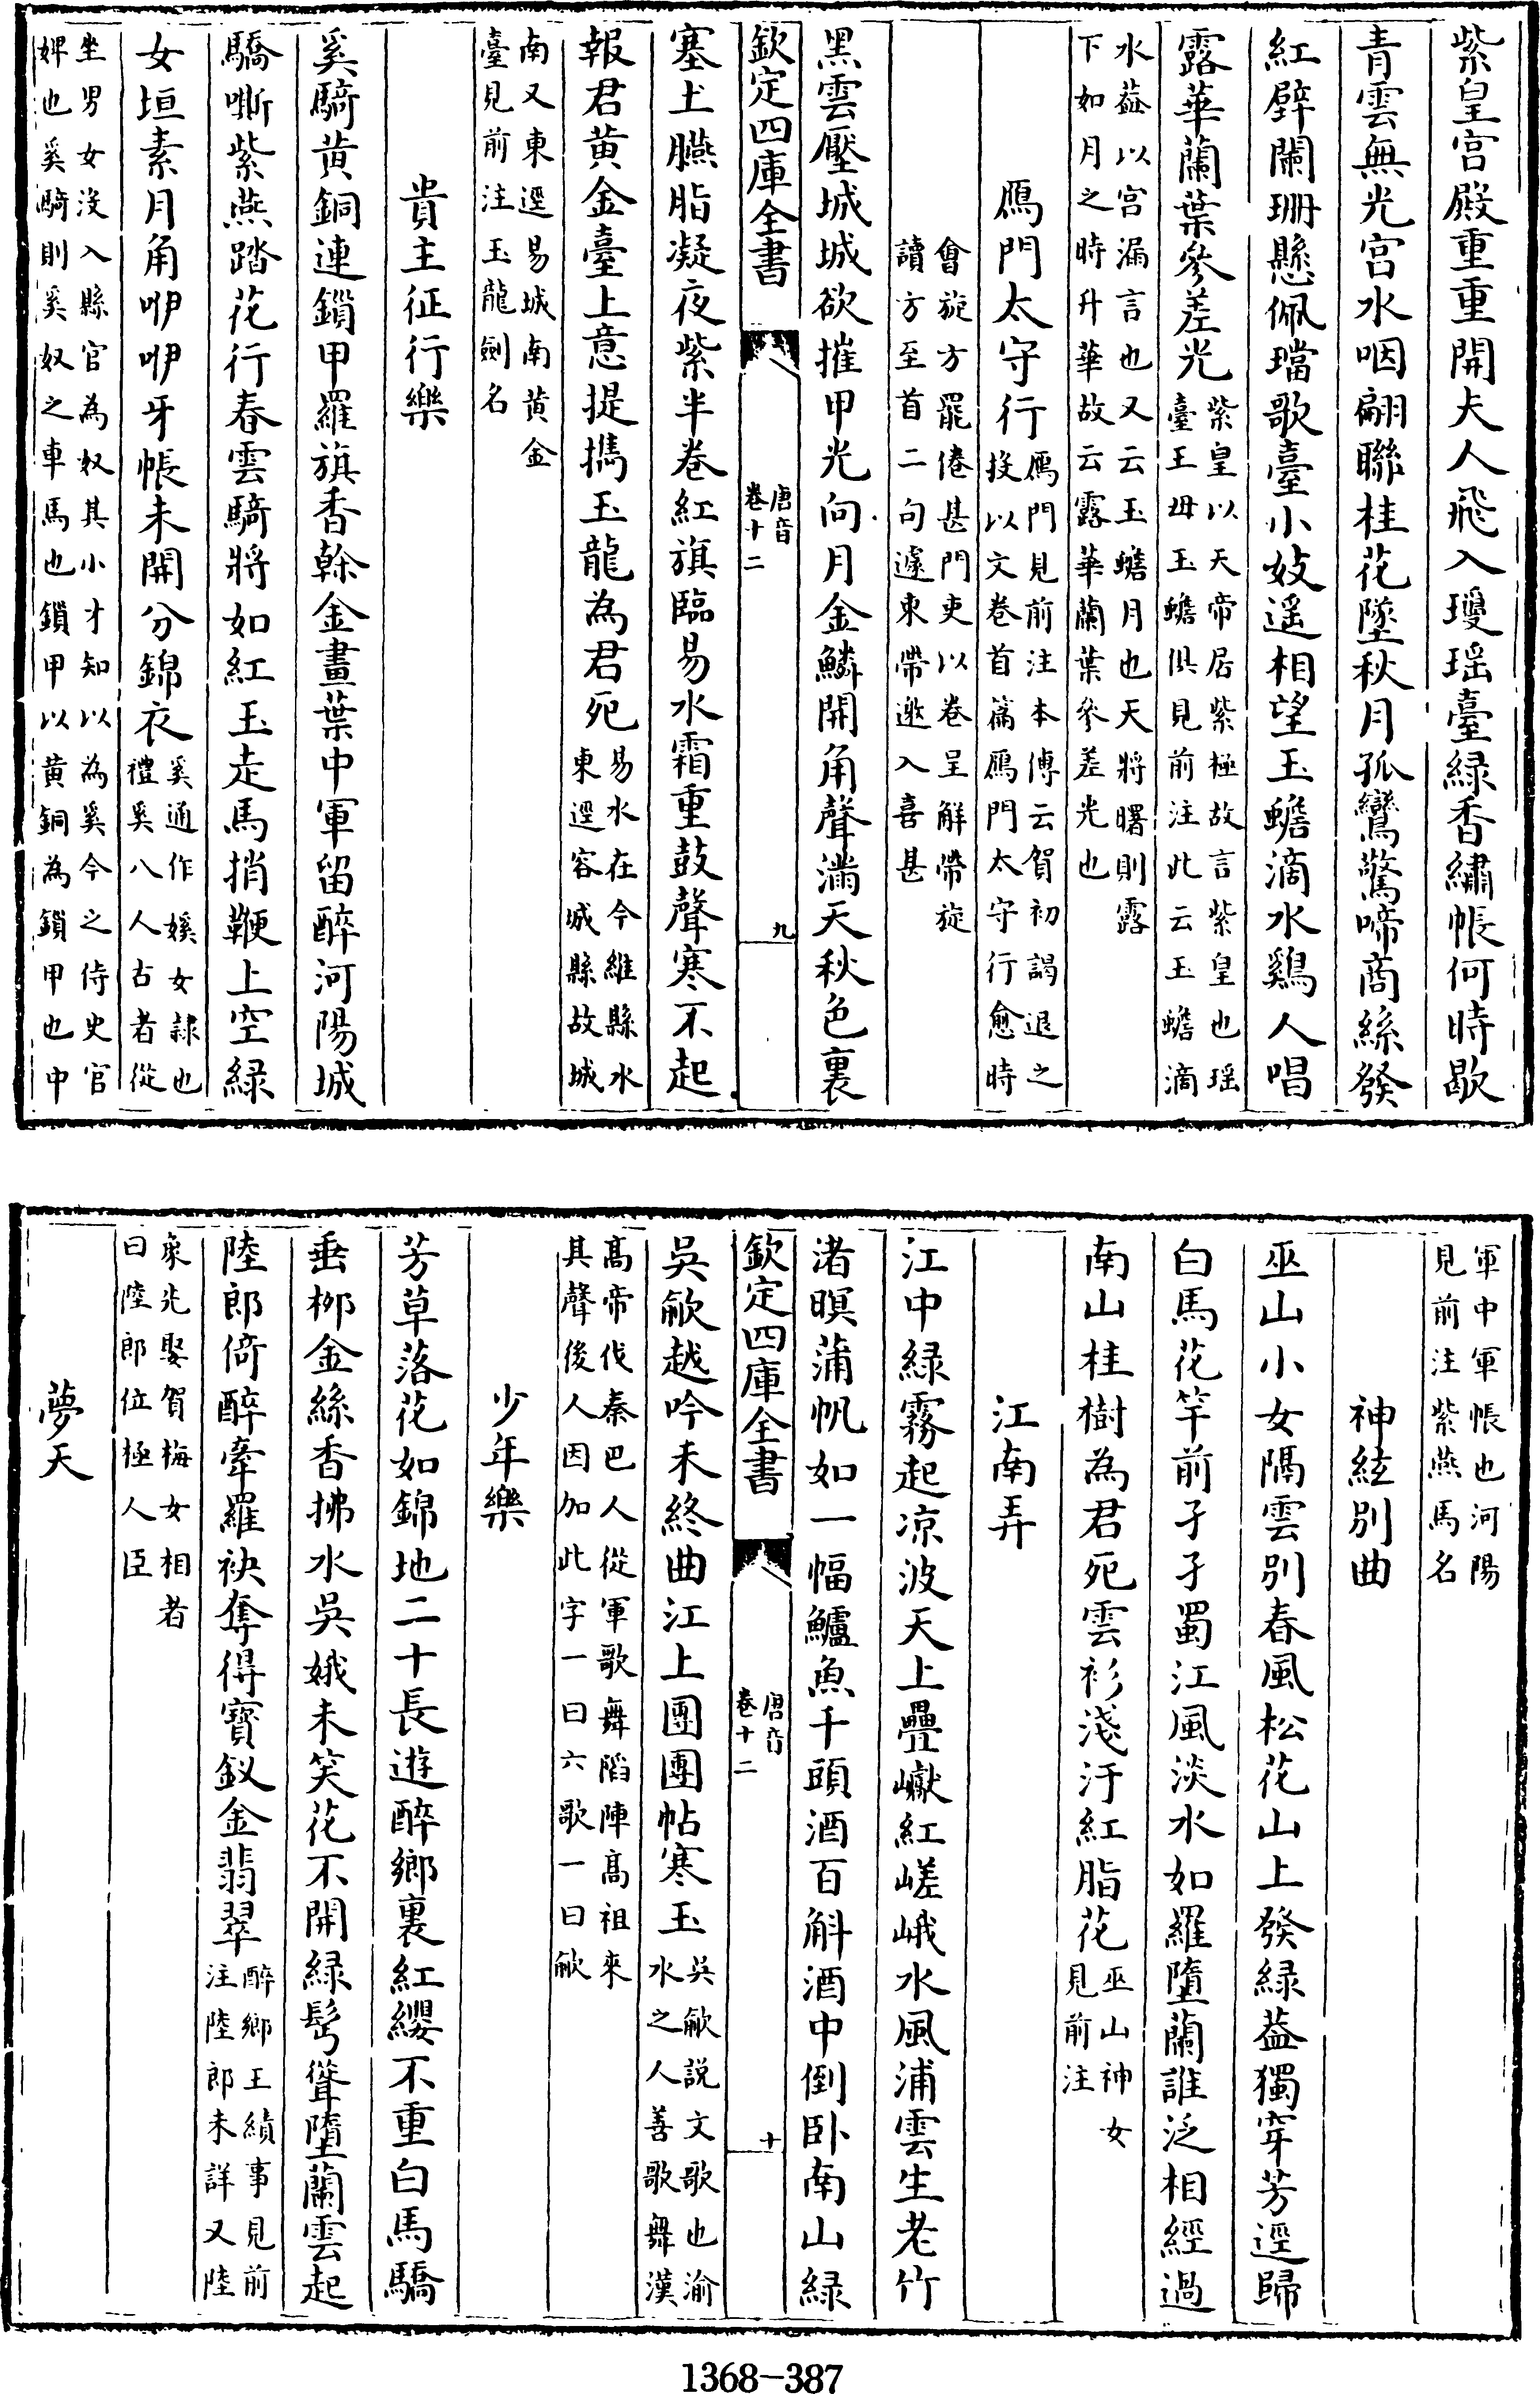 紫皇宫殿重重開夫人飛入瓊瑶臺緑香繡帳何時歇
青雲無光宫水咽翩聯桂花墜秋月孤鸞驚啼商絲發
紅壁闌珊懸佩璫歌臺小妓遥相望玉蟾滴水鷄人唱
露華蘭葉參差光紫皇以天帝居紫極故言紫皇也瑶
臺王母玉蟾俱見前注此云玉蟾滴
水葢以宫漏言也又云玉蟾月也天將曙則露
下如月之時升華故云露華蘭葉參差光也
鴈門太守行鴈門見前注本傅云賀初謁退之
投以文卷首篇鴈門太守行愈時
會旋方罷倦甚門吏以卷呈解帶旋
讀方至首二句遽束帶邀入喜甚
黑雲壓城城欲摧甲光向月金鱗開角聲滿天秋色裏
欽定四庫全書
唐音
卷十二
九
塞土臙脂凝夜紫半卷紅旗臨易水霜重鼓聲寒不起
報君黄金臺上意提攜玉龍為君死易水在今維縣水
東逕容城縣故城
南又東逕易城南黄金
臺見前注玉龍劍名
貴主征行樂
奚騎黄銅連鎖甲羅旗香幹金畫葉中軍留醉河陽城
驕嘶紫燕踏花行春雲騎將如紅玉走馬捎鞭上空緑
女垣素月角咿咿牙帳未開分錦衣奚通作㜎女隷也
禮奚八人古者從
坐男女没入縣官為奴其小才知以為奚今之侍史官
婢也奚騎則奚奴之車馬也鎖甲以黄銅為鎖甲也中
軍中軍帳也河陽
見前注紫燕馬名
神絃别曲
巫山小女隔雲别春風松花山上發緑葢獨穿芳逕歸
白馬花竿前孑孑蜀江風淡水如羅墮蘭誰泛相經過
南山桂樹為君死雲衫淺汙紅脂花巫山神女
見前注
江南弄
江中緑霧起凉波天上疊巘紅嵯峨水風浦雲生老竹
渚暝蒲帆如一幅鱸魚千頭酒百斛酒中倒卧南山緑
欽定四庫全書
唐音
卷十二
十
吳歈越吟未終曲江上團團帖寒玉吳歈説文歌也渝
水之人善歌舞漢
髙帝伐秦巴人從軍歌舞䧟陣髙祖來
其聲後人因加此字一曰六歌一曰歈
少年樂
芳草落花如錦地二十長遊醉鄉裏紅纓不重白馬驕
垂栁金絲香拂水吳娥未笑花不開緑髩聳墮蘭雲起
陸郎倚醉牽羅袂奪得寳釵金翡翠醉鄉王績事見前
注陸郎未詳又陸
象先娶賀梅女相者
曰陸郎位極人臣
夢天
1368-387